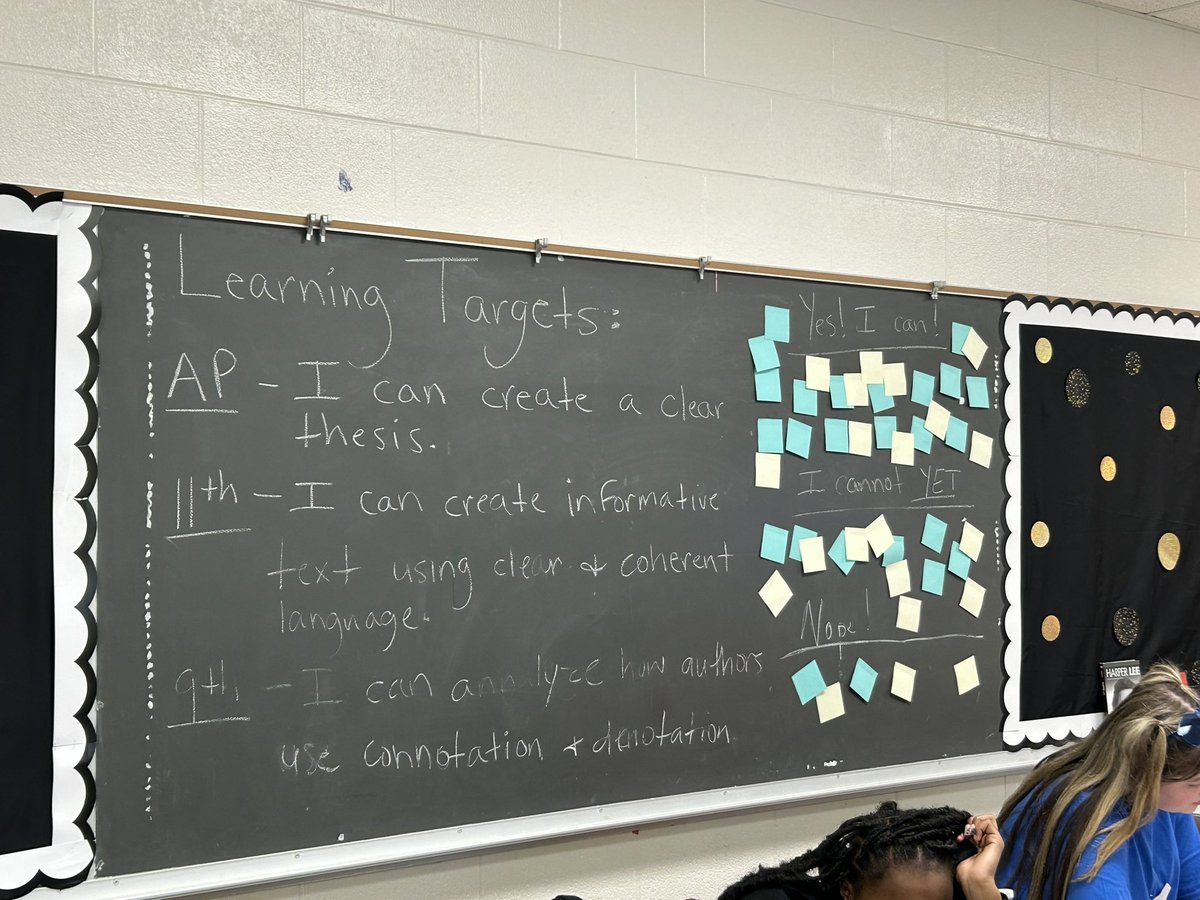 Learning Targets:
AP - I can create a clear
thesis.
11th - I can create informative
text using clear & coherent
language.
9th - I can analyze how authors
use connotation & denotation
Yes! I can!
I cannot YET
Nope!
HARPER LEE